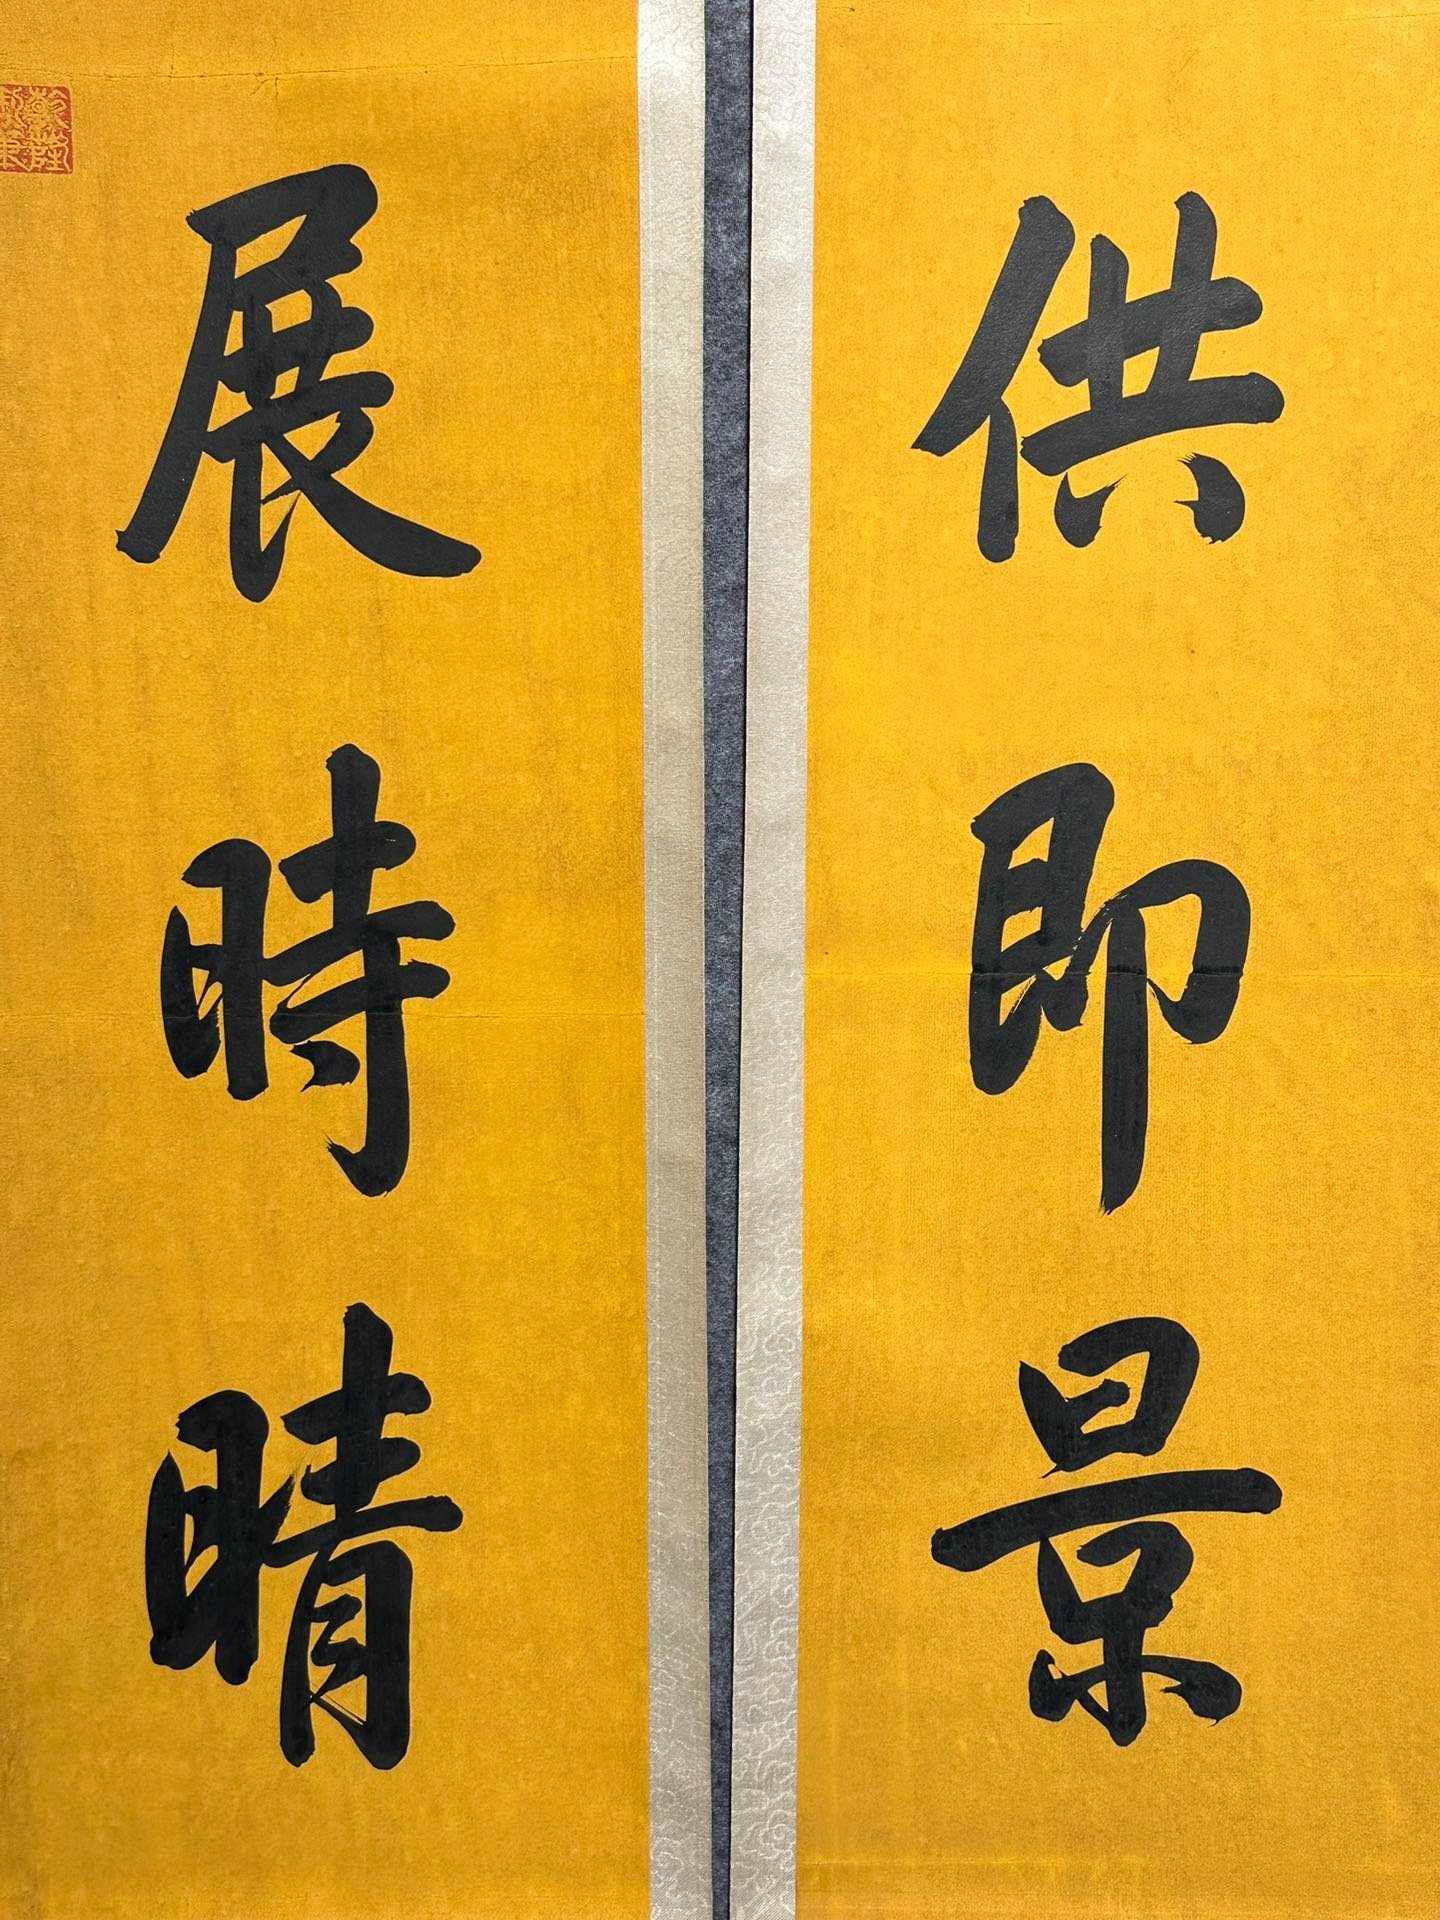 供即景
展時晴